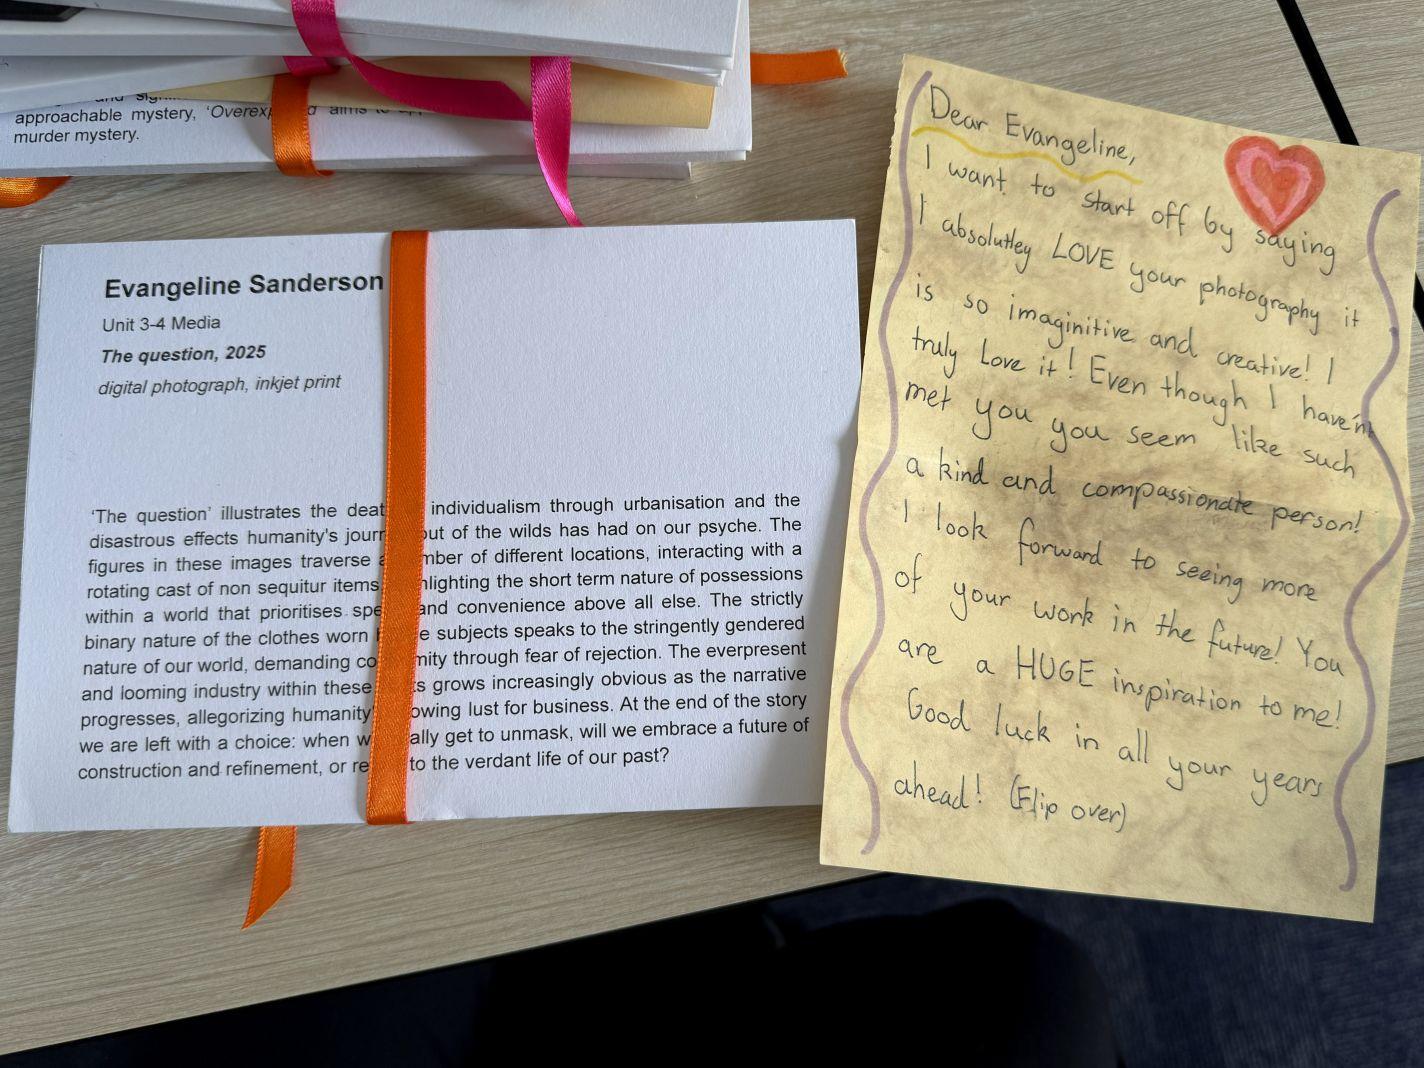 approachable mystery, 'Overexp d aims to
murder mystery.
Evangeline Sanderson
Unit 3-4 Media
The question, 2025
digital photograph, inkjet print
'The question' illustrates the deat individualism through urbanisation and the
disastrous effects humanity's journ out of the wilds has had on our psyche. The
figures in these images traverse a mber of different locations, interacting with a
rotating cast of non sequitur items hlighting the short term nature of possessions
within a world that prioritises spe and convenience above all else. The strictly
binary nature of the clothes worn e subjects speaks to the stringently gendered
nature of our world, demanding co mity through fear of rejection. The everpresent
and looming industry within these s grows increasingly obvious as the narrative
progresses, allegorizing humanity' owing lust for business. At the end of the story
we are left with a choice: when w ally get to unmask, will we embrace a future of
construction and refinement, or re to the verdant life of our past?
Dear Evangeline,
I want to start off by saying
I absolutley LOVE your photography it
is so imaginitive and creative! I
truly Love it! Even though I haven't
met you you seem like such
a kind and compassionate person!
I look forward to seeing more
of your work in the future! You
are a HUGE inspiration to me!
Good luck in all your years
ahead! (Flip over)